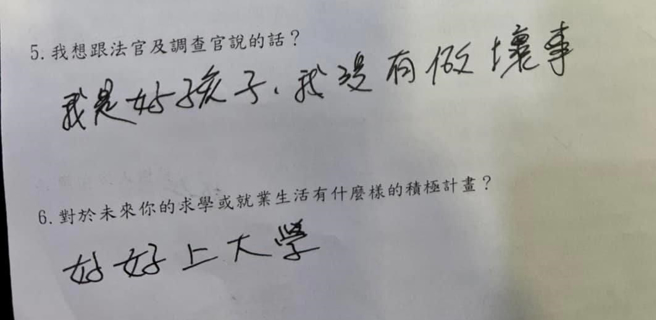 5. 我想跟法官及調查官說的話？
我是好孩子、我沒有做壞事
6. 對於未來你的求學或就業生活有什麼樣的積極計畫？
好好上大學